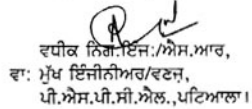 ਵਧੀਕ ਨਿਗ:ਇੰਜ:/ਐਸ.ਆਰ,
ਵਾ: ਮੁੱਖ ਇੰਜੀਨੀਅਰ/ਵਣਜ,
ਪੀ.ਐਸ.ਪੀ.ਸੀ.ਐਲ., ਪਟਿਆਲਾ।